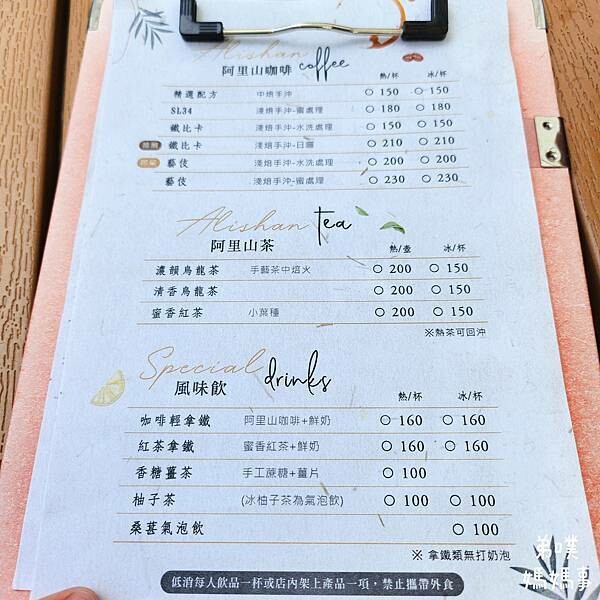 Alishan coffee
阿里山咖啡 熱/杯 冰/杯
精選配方 中焙手沖 ○ 150 ○ 150
SL34 淺焙手沖-蜜處理 ○ 180 ○ 180
鐵比卡 淺焙手沖-水洗處理 ○ 150 ○ 150
鐵比卡 淺焙手沖-日曬 ○ 210 ○ 210
藝伎 淺焙手沖-水洗處理 ○ 200 ○ 200
藝伎 淺焙手沖-蜜處理 ○ 230 ○ 230
Alishan tea
阿里山茶 熱/壺 冰/杯
濃韻烏龍茶 手藝茶中焙火 ○ 200 ○ 150
清香烏龍茶 ○ 200 ○ 150
蜜香紅茶 小葉種 ○ 200 ○ 150
※熱茶可回沖
Special drinks
風味飲 熱/杯 冰/杯
咖啡輕拿鐵 阿里山咖啡+鮮奶 ○ 160 ○ 160
紅茶拿鐵 蜜香紅茶+鮮奶 ○ 160 ○ 160
香糖薑茶 手工蔗糖+薑片 ○ 100
柚子茶 (冰柚子茶為氣泡飲) ○ 100 ○ 100
桑葚氣泡飲 ○ 100
※ 拿鐵類無打奶泡
低消每人飲品一杯或店內架上產品一項，禁止攜帶外食
弟噗
媽媽事